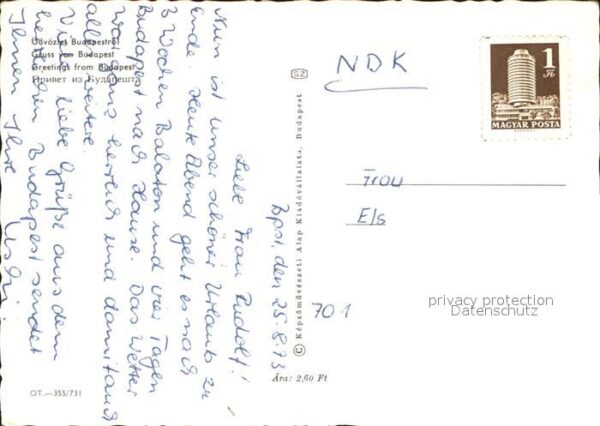 Üdvözlet Budapestről
Gruss von Budapest
Greetings from Budapest
Привет из Будапешта
Bpst, den 25.8.73
Liebe Frau Rudolf!
Nun ist unser schöner Urlaub zu
Ende. Heute Abend geht es nach
3 Wochen Balaton und vier Tagen
Budapest nach Hause. Das Wetter
war uns herrlich und damit auch
alles weitere.
Viele liebe Grüße aus dem
herrlichen Budapest sendet
Ihnen Ihre
OT.—355/731
SZ
© Képzőművészeti Alap Kiadóvállalata, Budapest
Ára: 2,60 Ft
NDK
1
Ft
MAGYAR POSTA
Frau
Els
701
privacy protection
Datenschutz